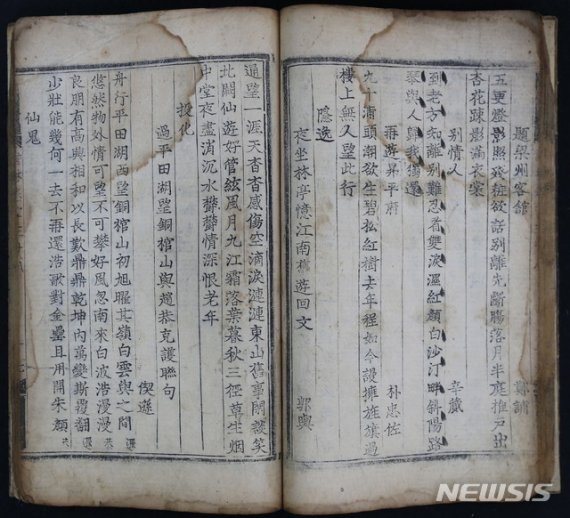 題梁州客舘 鄭誧
五更燈影照殘粧欲話別離先斷膓落月半庭推戶出
杏花疎影滿衣裳
別情人 辛蕆
到老方知離別難忍看雙淚濕紅顔白沙汀畔斜陽路
琴與人歸我獨還
再遊昇平府 朴忠佐
九十浦頭潮欲生碧松紅樹去年程如今謾擁旌旗過
樓上無人望此行
隱逸
夜坐林亭憶江南舊遊回文 郭輿
遥望一涯天杳杳感傷空滴淚漣漣東山舊事閑談笑
北闕仙遊好管絃風月九江霜落葉暮秋三徑草生烟
中堂夜盡消沉水欝欝情深恨老年
投化
過平田湖望銅棺山與趙恭克護聯句 偰遜
舟行平田湖西望銅棺山初旭曜其嶺白雲與之間 遜
悠然物外情可望不可攀好風忽南來白波浩漫漫 恭
良朋有高興相和以長歎鼎鼎乾坤內萬變斯覆翻 遜
少壯能幾何一去不再還浩歌對金罍且用開朱顔
仙鬼
NEWSIS